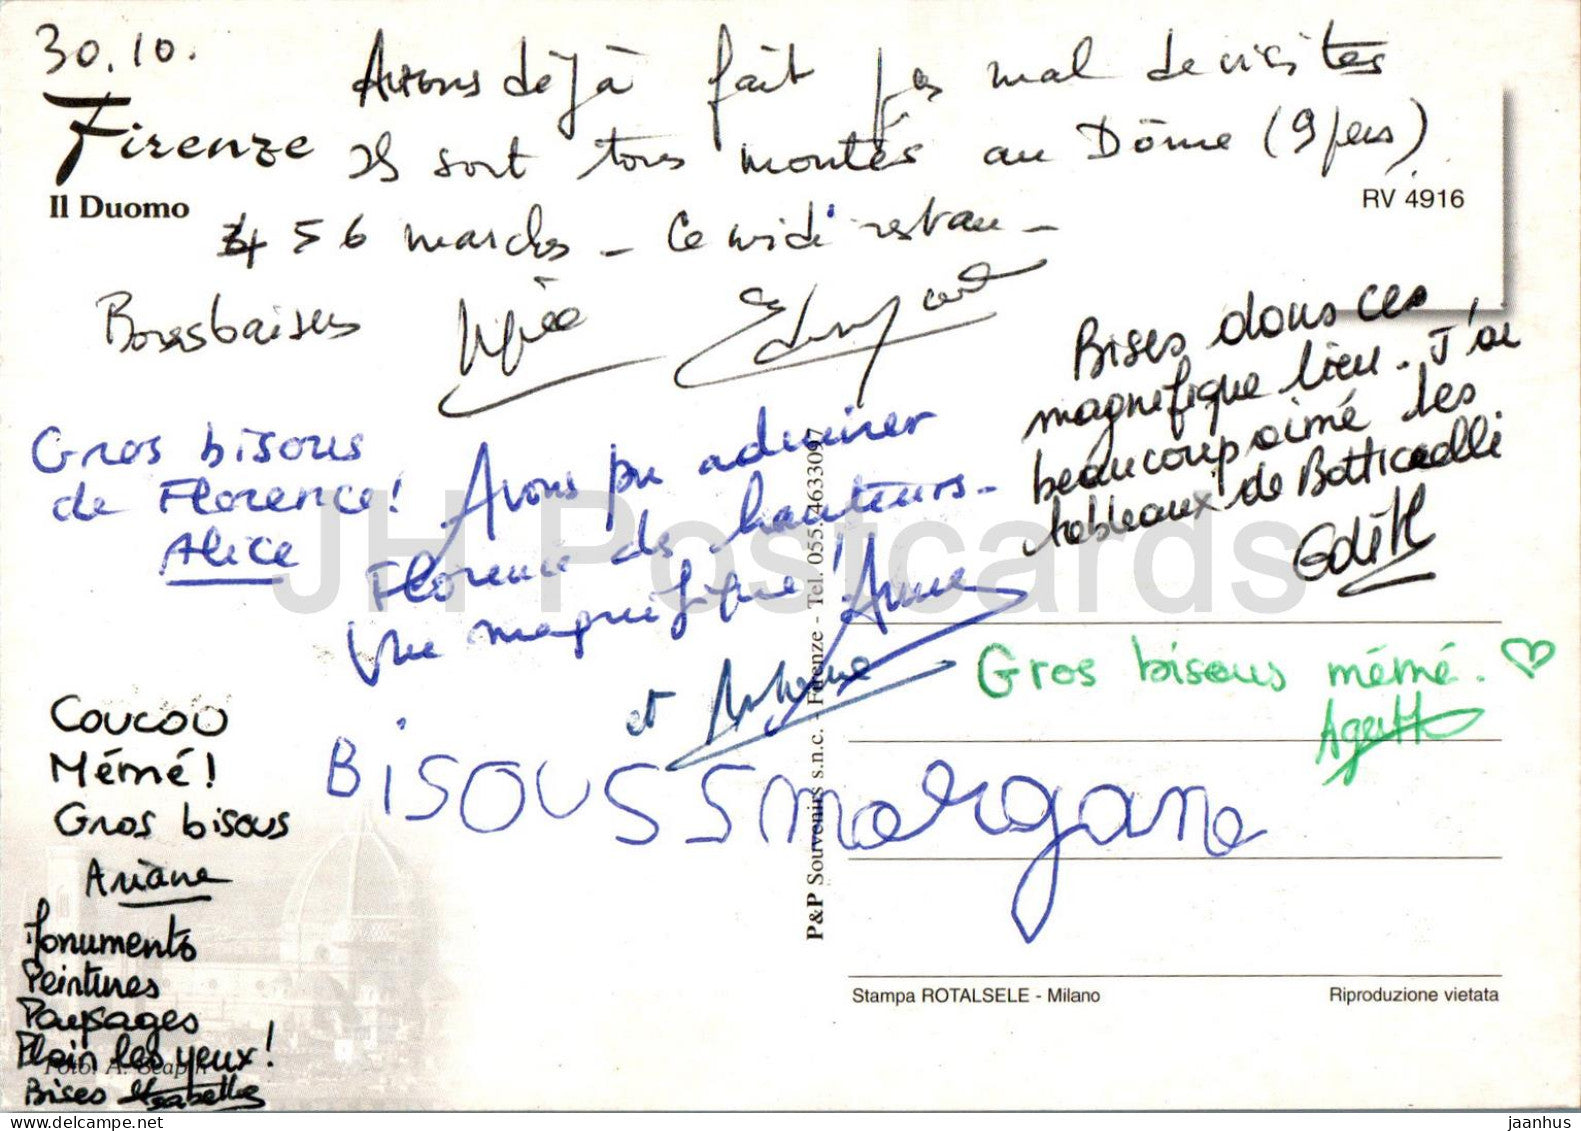 30.10.
Firenze
Il Duomo
RV 4916
Avons déjà fait pas mal de visites
Ils sont tous montés au Dôme (9 pers)
456 marches - Ce midi restau -
Bons baisers
Edouard
Bises dans ce
magnifique lieu. J'ai
beaucoup aimé les
tableaux de Botticelli
Edith
Gros bisous
de Florence!
Alice
Avons pu admirer
Florence des hauteurs -
Vue magnifique! Anne
et Antoine
Gros bisous mémé. ♡
Agathe
BISOUSS morgane
COUCOU
Mémé!
Gros bisous
Ariane
Monuments
Peintures
Paysages
Plein les yeux!
Bises Isabelle
P&P Souvenirs s.n.c. - Firenze - Tel. 055.4633097
Stampa ROTALSELE - Milano
Riproduzione vietata
JH Postcards
jaanhus